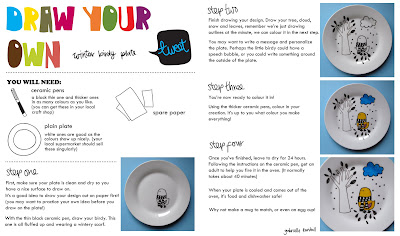 DRAW YOUR
OWN
winter birdy plate
tweet
YOU WILL NEED:
ceramic pens
a black thin one and thicker ones
in as many colours as you like.
(you can get these in your local
craft shop)
spare paper
plain plate
white ones are good as the
colours show up nicely. (your
local supermarket should sell
these singularly)
step one
First, make sure your plate is clean and dry so you
have a nice surface to draw on.
It's a good idea to draw your design out on paper first!
(you may want to practice your own idea before you
draw on the plate!)
With the thin black ceramic pen, draw your birdy. This
one is all fluffed up and wearing a wintery scarf.
step two
Finish drawing your design. Draw your tree, cloud,
snow and leaves, remember we're just drawing
outlines at the minute, we can colour it in the next step.
You may want to write a message and personalise
the plate. Perhaps the little birdy could have a
speech bubble, or you could write something around
the outside of the plate.
step three
You're now ready to colour it in!
Using the thicker ceramic pens, colour in your
creation. It's up to you what colour you make
everything!
step four
Once you've finished, leave to dry for 24 hours.
Following the instructions on the ceramic pen, get an
adult to help you fire it in the oven. (It normally
takes about 40 minutes)
When your plate is cooled and comes out of the
oven, it's food and dishwasher safe!
Why not make a mug to match, or even an egg cup!